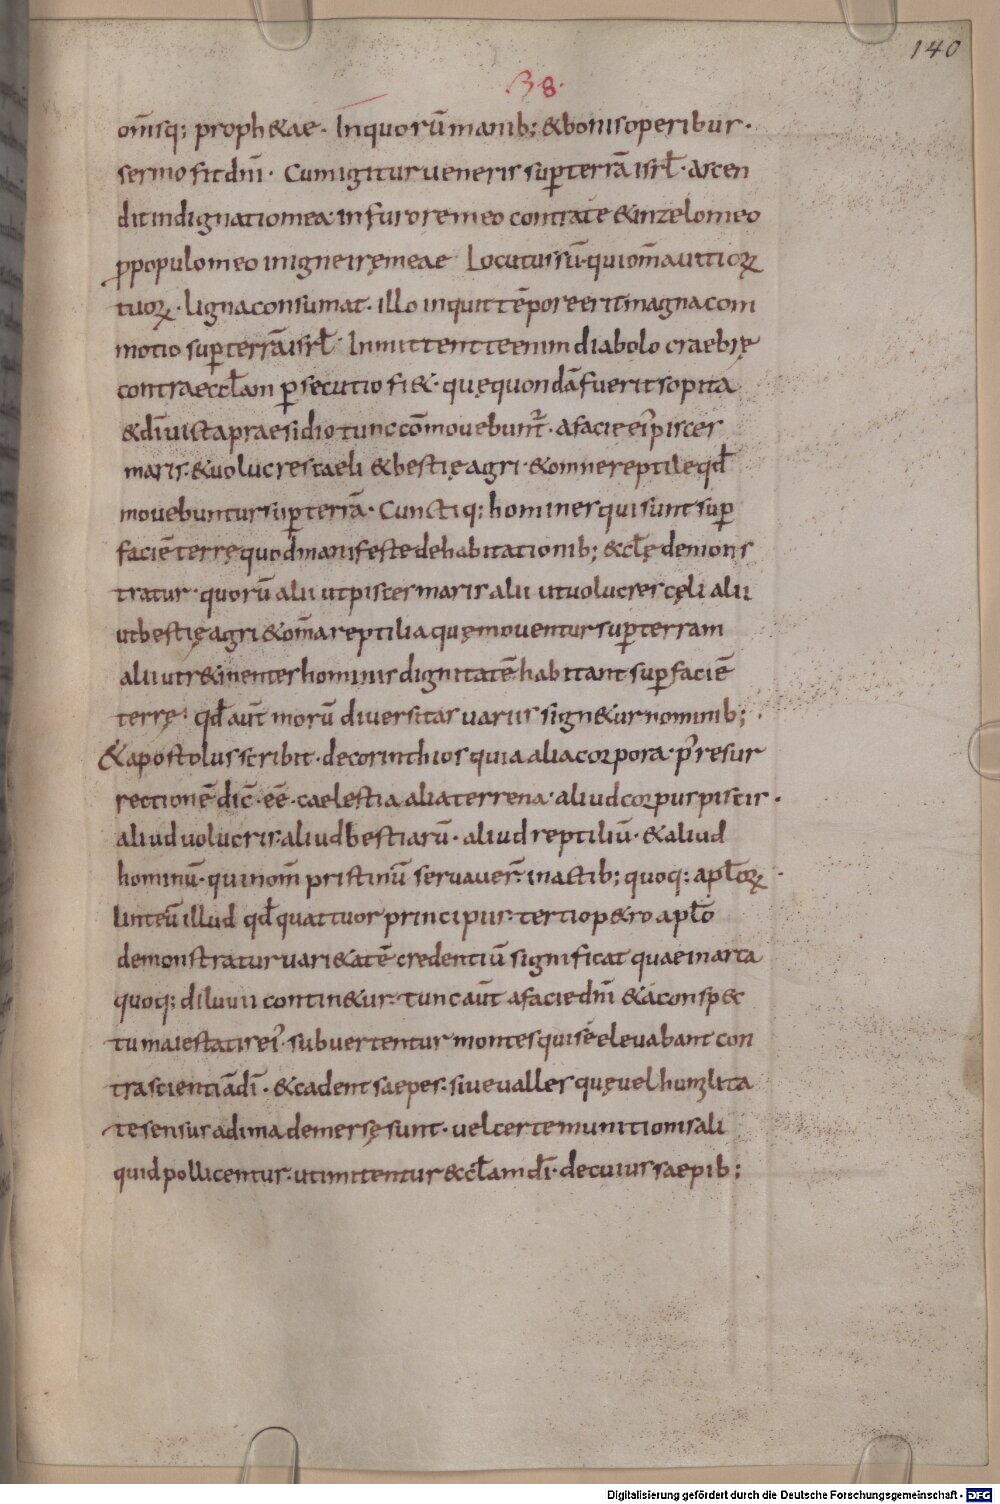 140
38.
om̅sq; proph&ae · Inquorū manib; & bonis operibus ·
sermo fit dn̅i · Cum igitur veneris sup terrā isrl̅ · ascen
dit indignatio mea in furore meo contra te & in zelo meo
ꝓ populo meo in igne irę meae Locutus sū · qui om̅a vitioꝝ
tuoꝝ · ligna consumat · illo inquit tēpore erit magna com
motio sup terrā isrl̅ · Inmittente enim diabolo craebrę
contra eccl̅am ꝑsecutio fi& · quę quondā fuerit sopita
& dī iusta praesidio tunc cōmovebunt̄ · a facie ei' pisces
maris · & volucres caeli & bestię agri · & omne reptile qd̅
movebuntur sup terrā · Cunctiq; homines qui sunt sup
faciē terrę quod manifeste de habitationib; eccl̅ę demons
tratur · quorū alii ut pisces maris alii ut volucres cęli alii
ut bestię agri & om̅a reptilia quę moventur sup terram
alii ut r&inentes hominis dignitatē habitant sup faciē
terrę · qd̅ aūt morū diversitas variis sign&ur nominib; ·
& apostolus scribit · de corinthios quia alia corpora · p' resur
rectionē dic̄ · eē · caelestia alia terrena · aliud corpus piscis ·
aliud volucris · aliud bestiarū · aliud reptiliū · & aliud
hominū · qui nom̅ pristinū servaver̄ · in actib; quoq; apl̅oꝝ
linteū illud qd̅ quattuor principiis · tertio p&ro apl̅o
demonstratur vari&atē credentiū significat quae in arca
quoq; diluvii contin&ur · tunc aūt a facie dn̅i & a consp&c
tu maiestatis ei' · subvertentur montes qui se elevabant con
tra scientiā dī · & cadent saepes · sive valles quę vel humilita
te sensus ad ima demersę sunt · vel certe munitionis ali
quid pollicentur · ut imitentur eccl̅am dī · de cuius saepib;
Digitalisierung gefördert durch die Deutsche Forschungsgemeinschaft - DFG